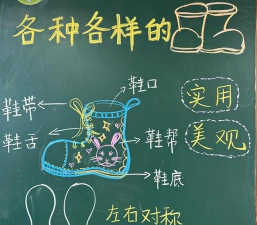 各种各样的
鞋口
鞋带
实用
鞋舌
鞋帮
美观
鞋底
左右对称